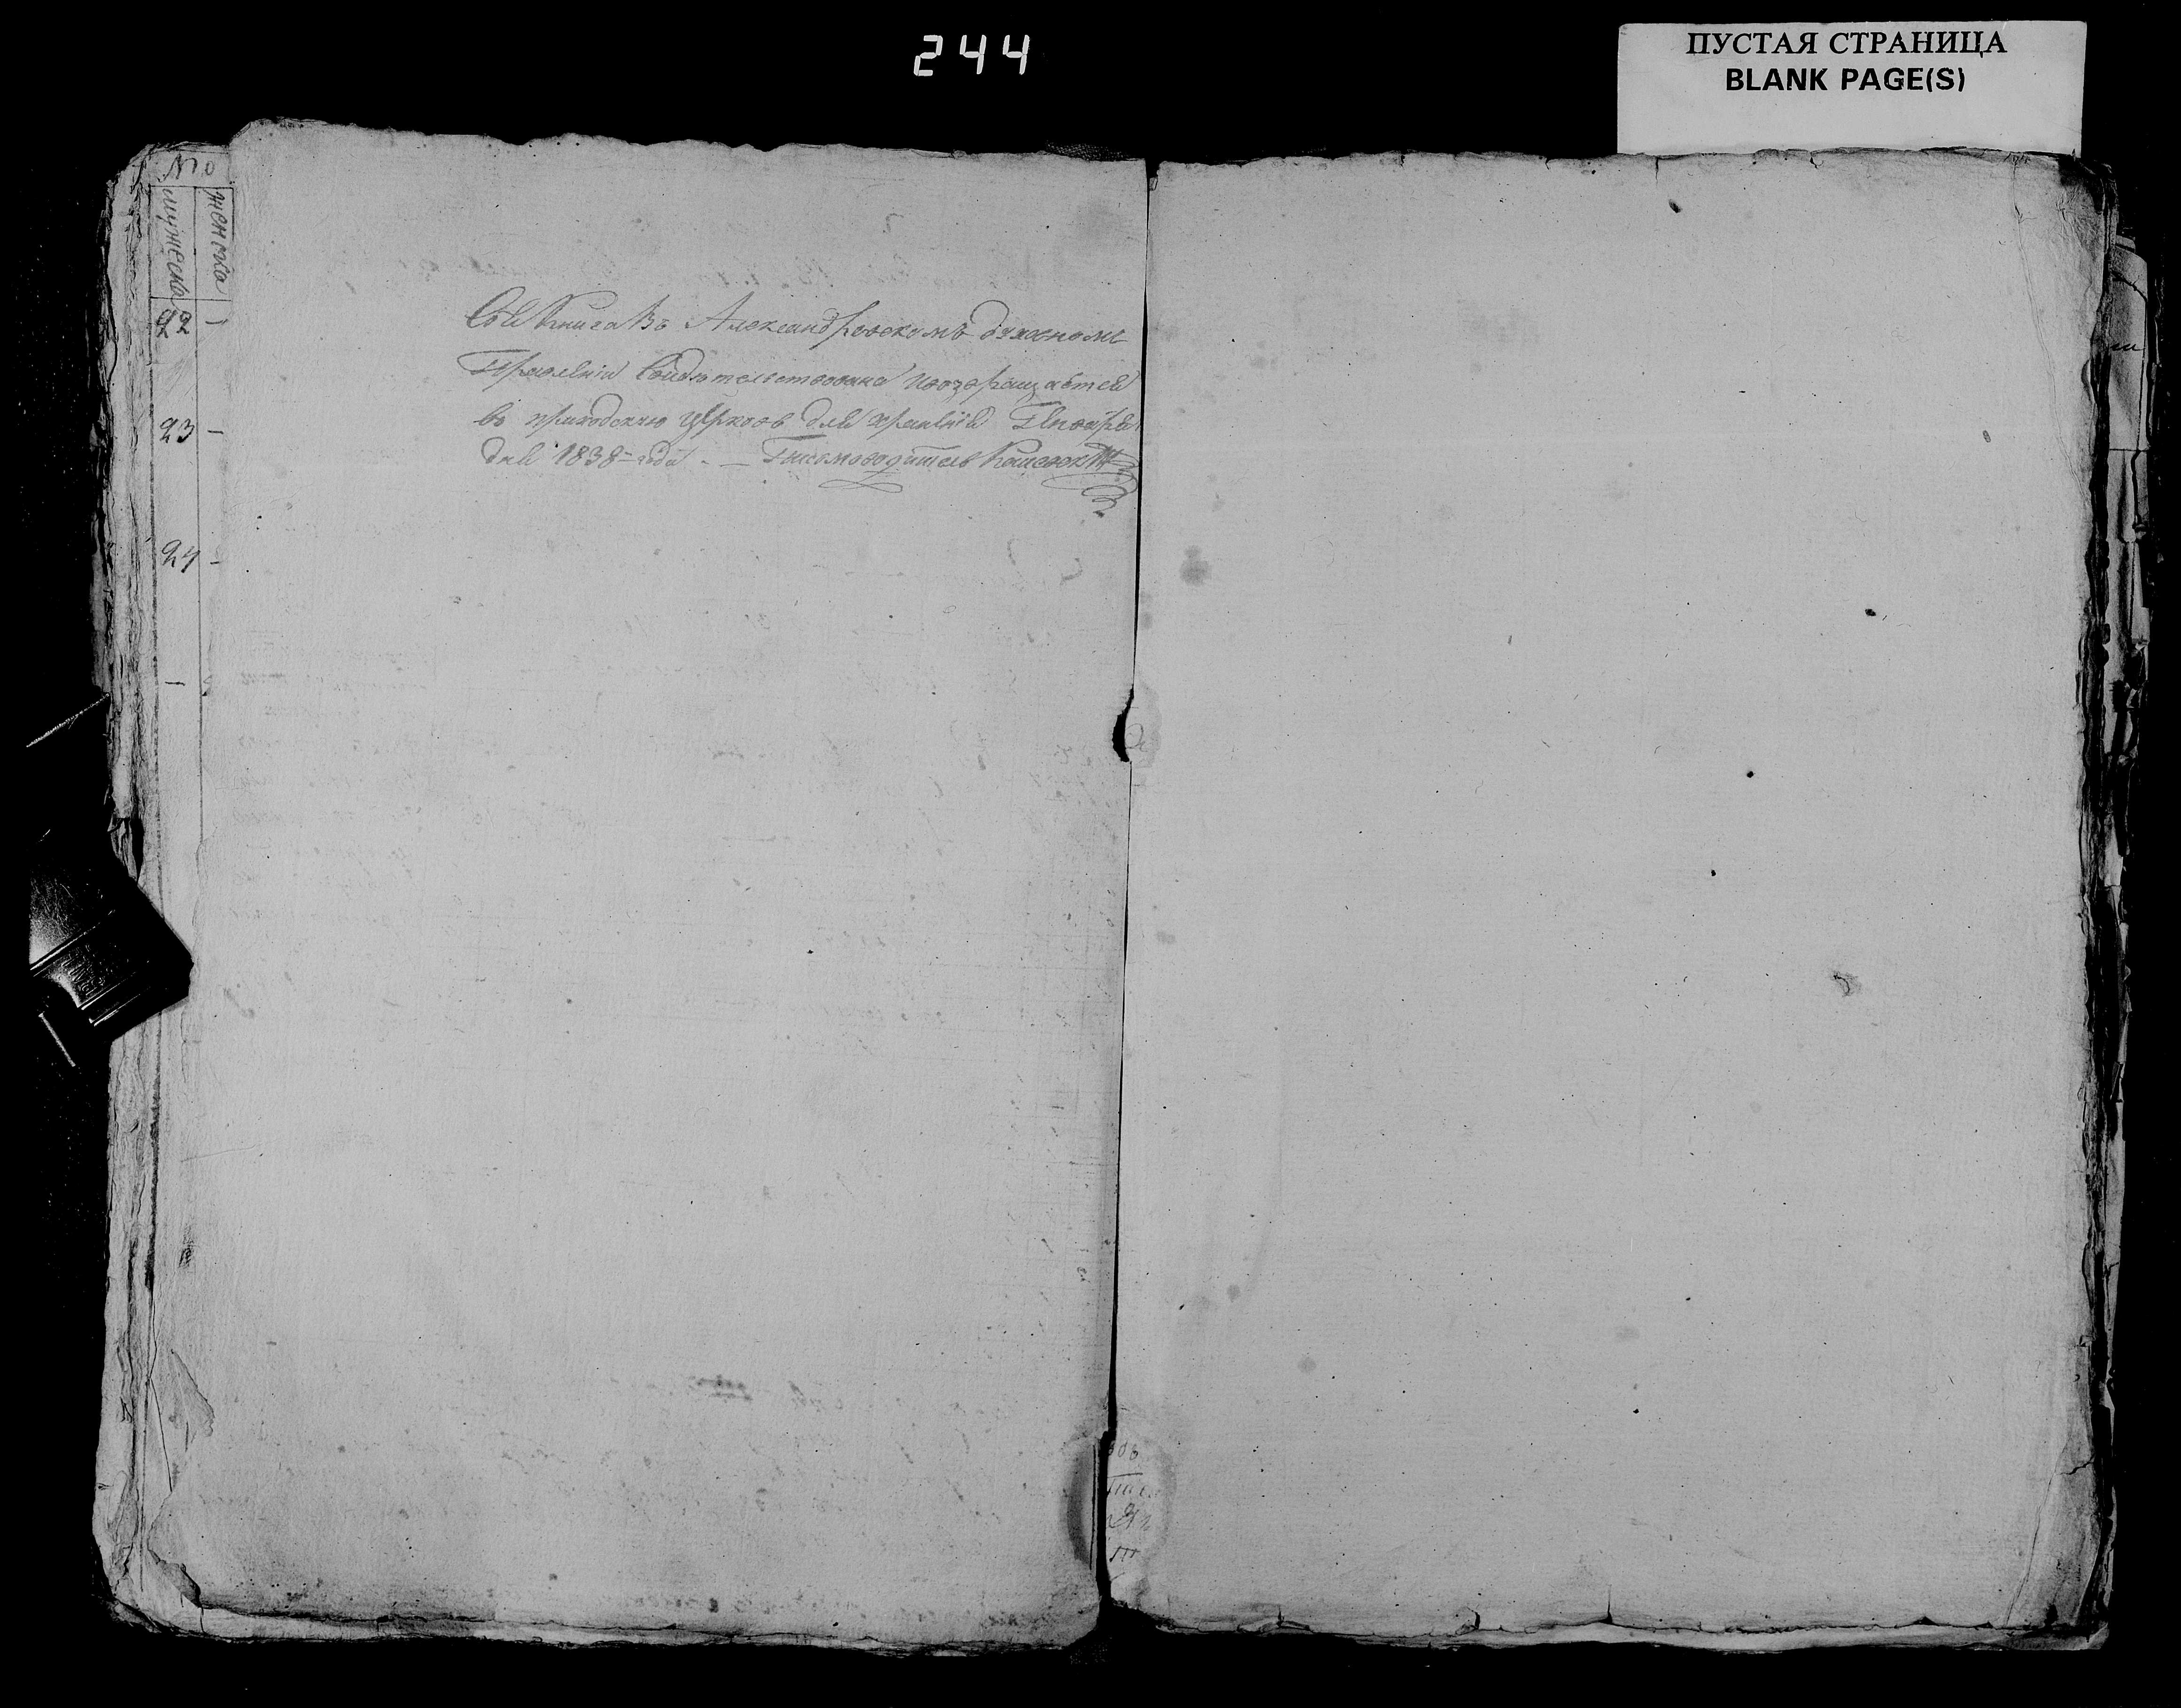 244
ПУСТАЯ СТРАНИЦА
BLANK PAGE(S)
№
мужеска
женска
22 -
23 -
24 -
-
Сія Книга Въ Александровскомъ духовномъ
Правленіи Свидѣтельствована ивозвращается
въ приходскую Церковь для храненія Генваря
дня 1838 года. — Письмоводитель